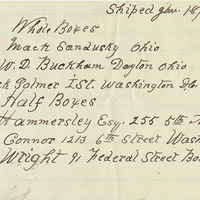 Shiped Jan. 187
Whole Boxes
Mack Sandusky Ohio
W. D. Buckham Dayton Ohio
ck Palmer I. St. Washington D.C.
Half Boxes
Hammersley Esq. 255 5th A
Connor 1213 6th Street Wash
Wright 91 Federal Street Bo